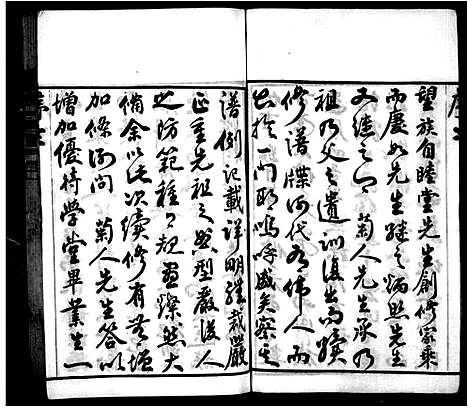 望族自睦堂先生創修家乘
而慶如先生繼之炳然先生
又繼之今菊人先生承乃
祖乃父之遺訓復出而續
修譜牒何代有偉人而
出於一門耶嗚呼盛矣察其
譜例記載詳明經裁嚴
正重先祖之典型嚴後人
之防範種種規畫燦然大
備余以此次續修有無增
加條例問菊人先生答以
增加優待學堂畢業生一